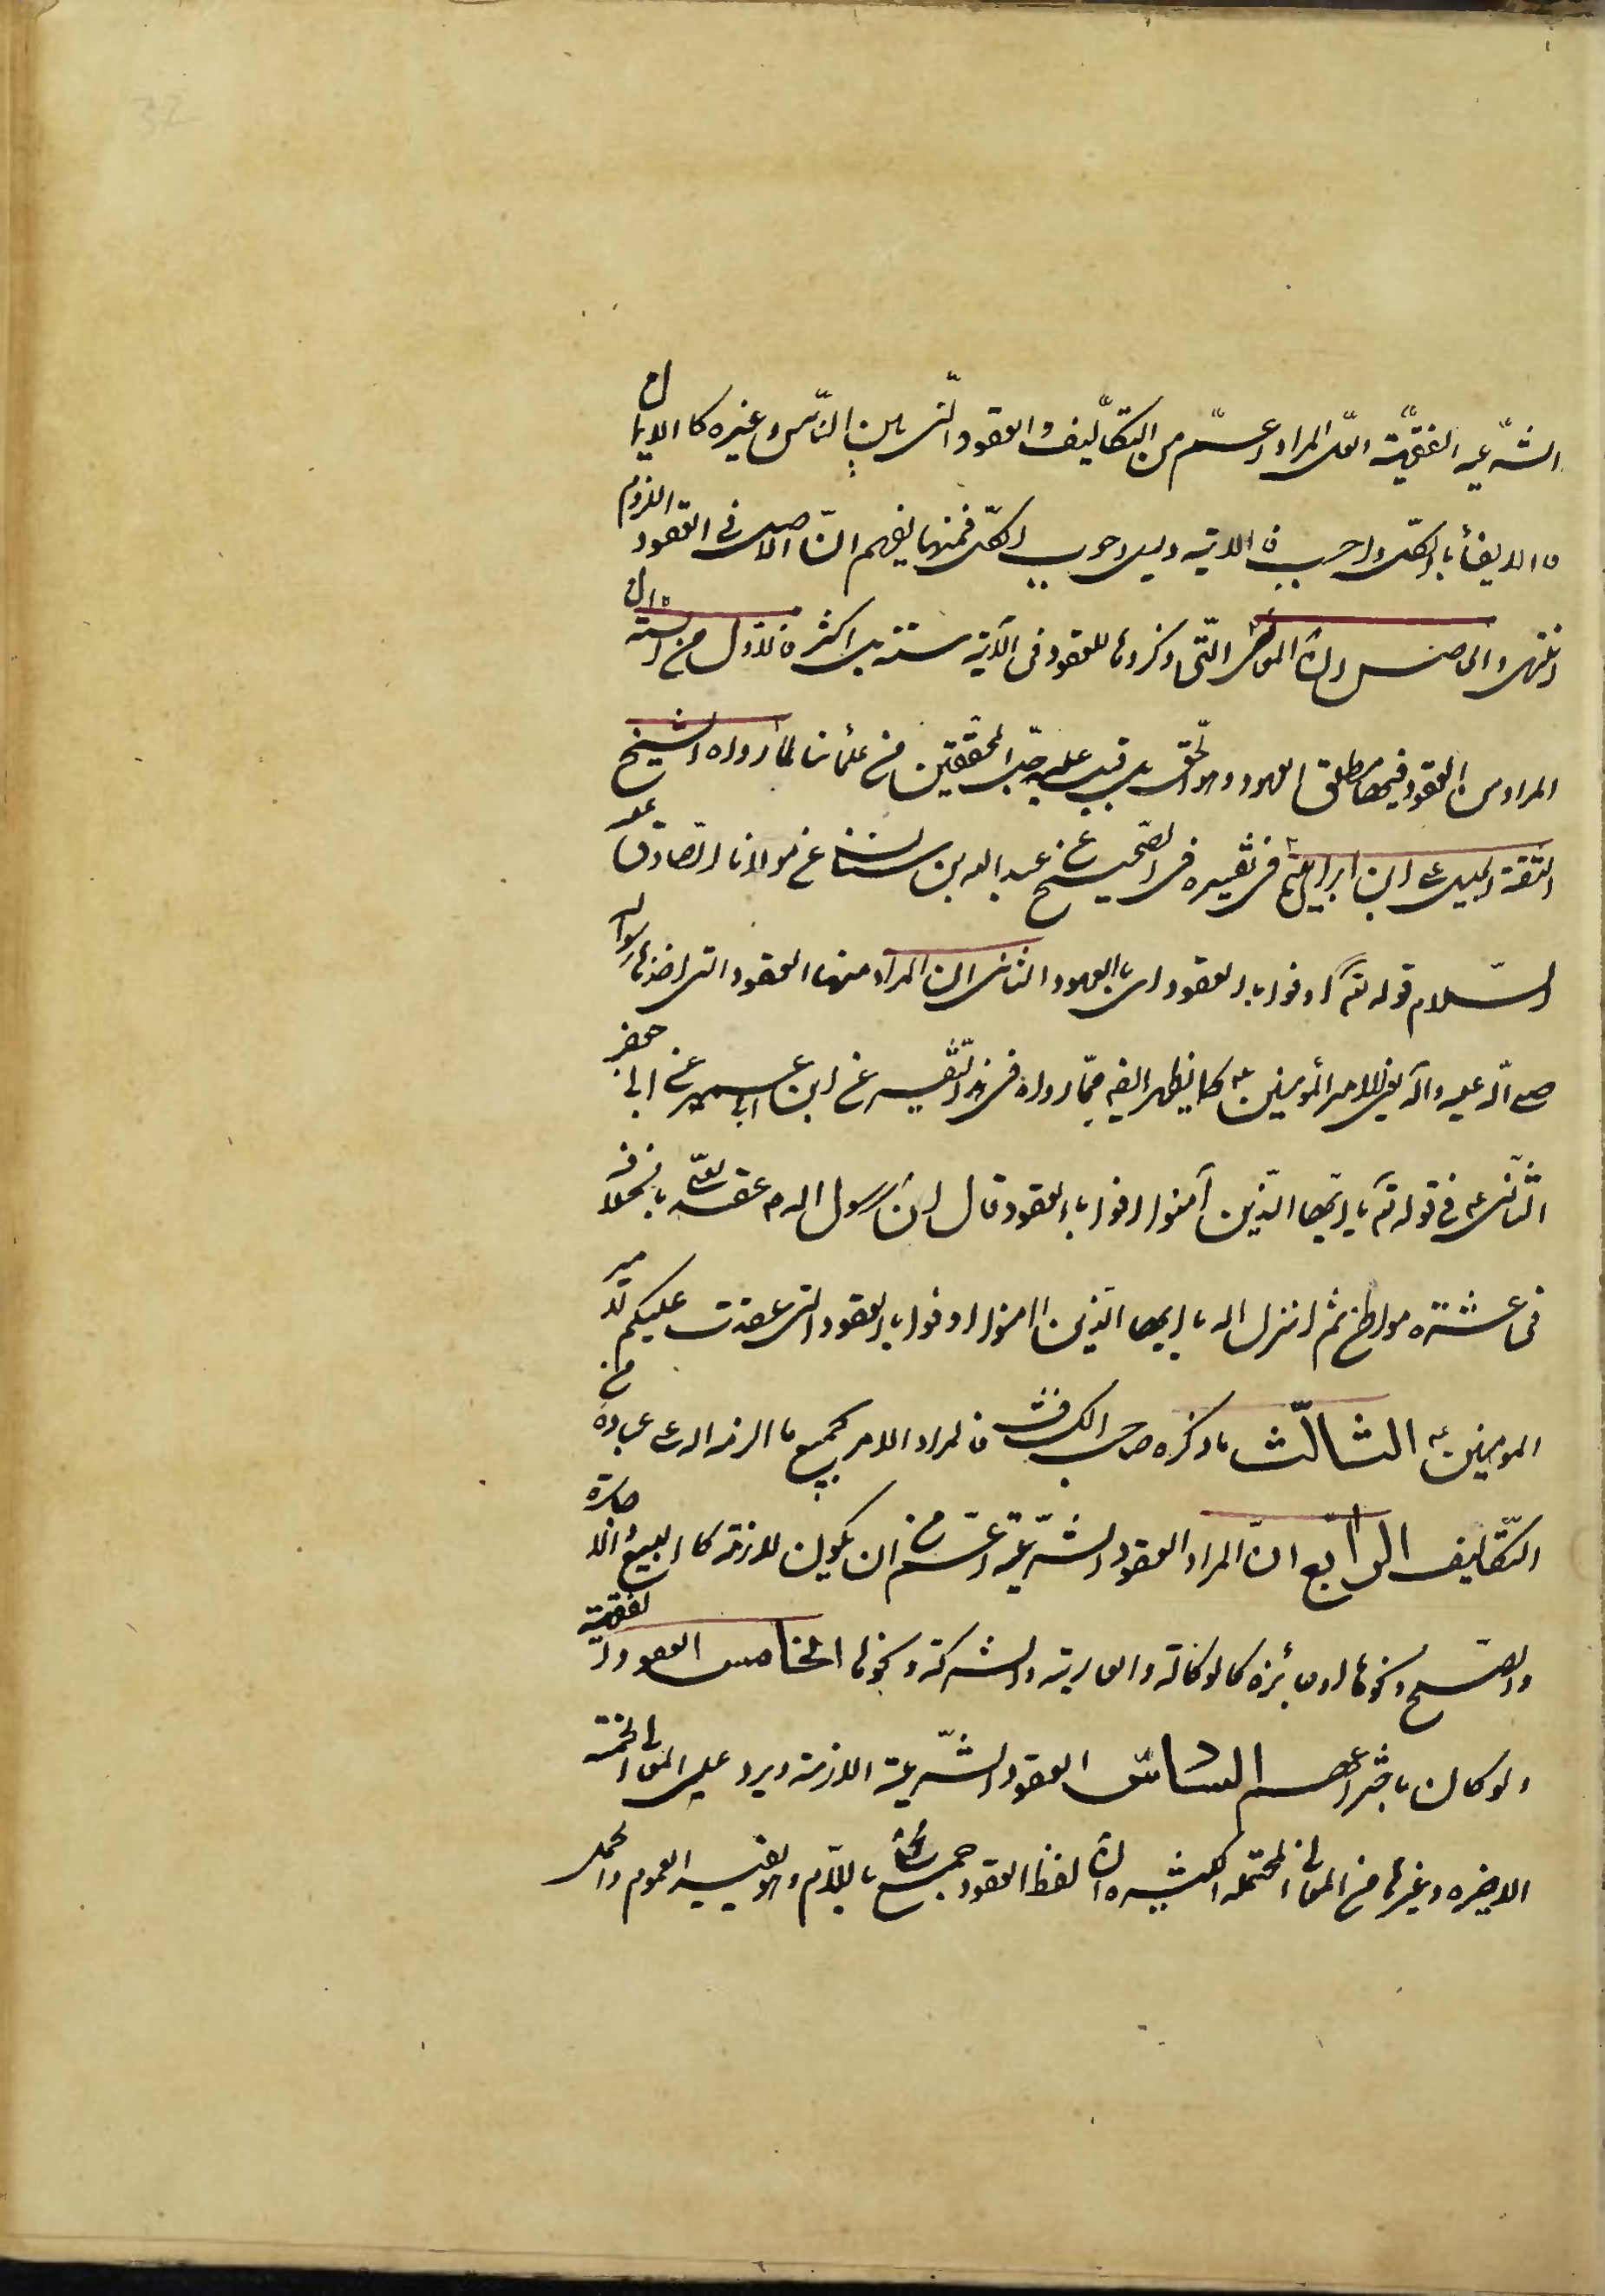 الشرعية الفقهية لعل المراد اعم من التكاليف والعقود التى بين الناس وغيره كالايمان
فالايفاء بالكل واجب فالاية دليل وجوب الكل فمنها يفهم ان الاصل فى العقود اللزوم
انتهى والحاصل ان المعانى التى ذكروها للعقود فى الآية ستة بل اكثر فالاول من الستة ان
المراد من العقود فيها مطلق العهود وهو الحق بل قيل عليه جل المحققين من علمائنا لما رواه الشيخ
الثقة الجليل على ابن ابراهيم فى تفسيره فى الصحيح عن عبد الله بن سنان عن مولانا الصادق عليه
السلام قوله تع اوفوا بالعقود اى بالعهود الثانى ان المراد منها العقود التى اخذها رسول الله
صلى الله عليه وآله لامير المؤمنين ع كما يظهر ايضا مما رواه فى التفسير عن ابن ابى عمير عن ابى جعفر
الثانى ع فى قوله تع يا ايها الذين آمنوا اوفوا بالعقود قال ان رسول الله ص عقد لعلى بالخلافة
فى عشرة مواطن ثم انزل الله يا ايها الذين امنوا اوفوا بالعقود التى عقدت عليكم لامير
المومنين ع الثالث ما ذكره صاحب الكشاف فالمراد الامر بجميع ما الزمه الله على عباده من
التكاليف الرابع ان المراد العقود الشرعية اعم من ان يكون لازمة كالبيع والاجارة
والصلح ونحوها او جائزة كالوكالة والعارية والشركة ونحوها الخامس العقود الفقهية
ولو كان جائزا السادس العقود الشرعية اللازمة ويرد على المعانى الخمسة
الاخيرة وغيرها من المعانى المحتملة الكثيرة ان لفظ العقود جمع محلى باللام وهو يفيد العموم والحمل